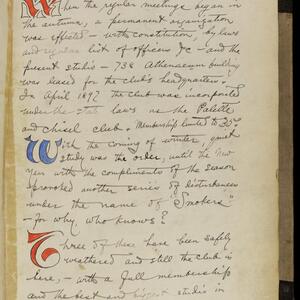 When the regular meetings began in
the autumn, a permanent organization
was effected – with constitution, by laws
and regular list of officers &c – and the
present studio – 738 Athenaeum building
was leased for the club's headquarters.
In April 1897 the club was incorporated
under the state laws as the Palette
and Chisel club. Membership limited to 25
With the coming of winter, quiet
study was the order, until the New
Year with the compliments of the season
provoked another series of disturbances
under the name of "Smokers"
– for why, who knows?
Three of these have been safely
weathered and still the club is
here, – with a full membership
and the best and biggest studio in